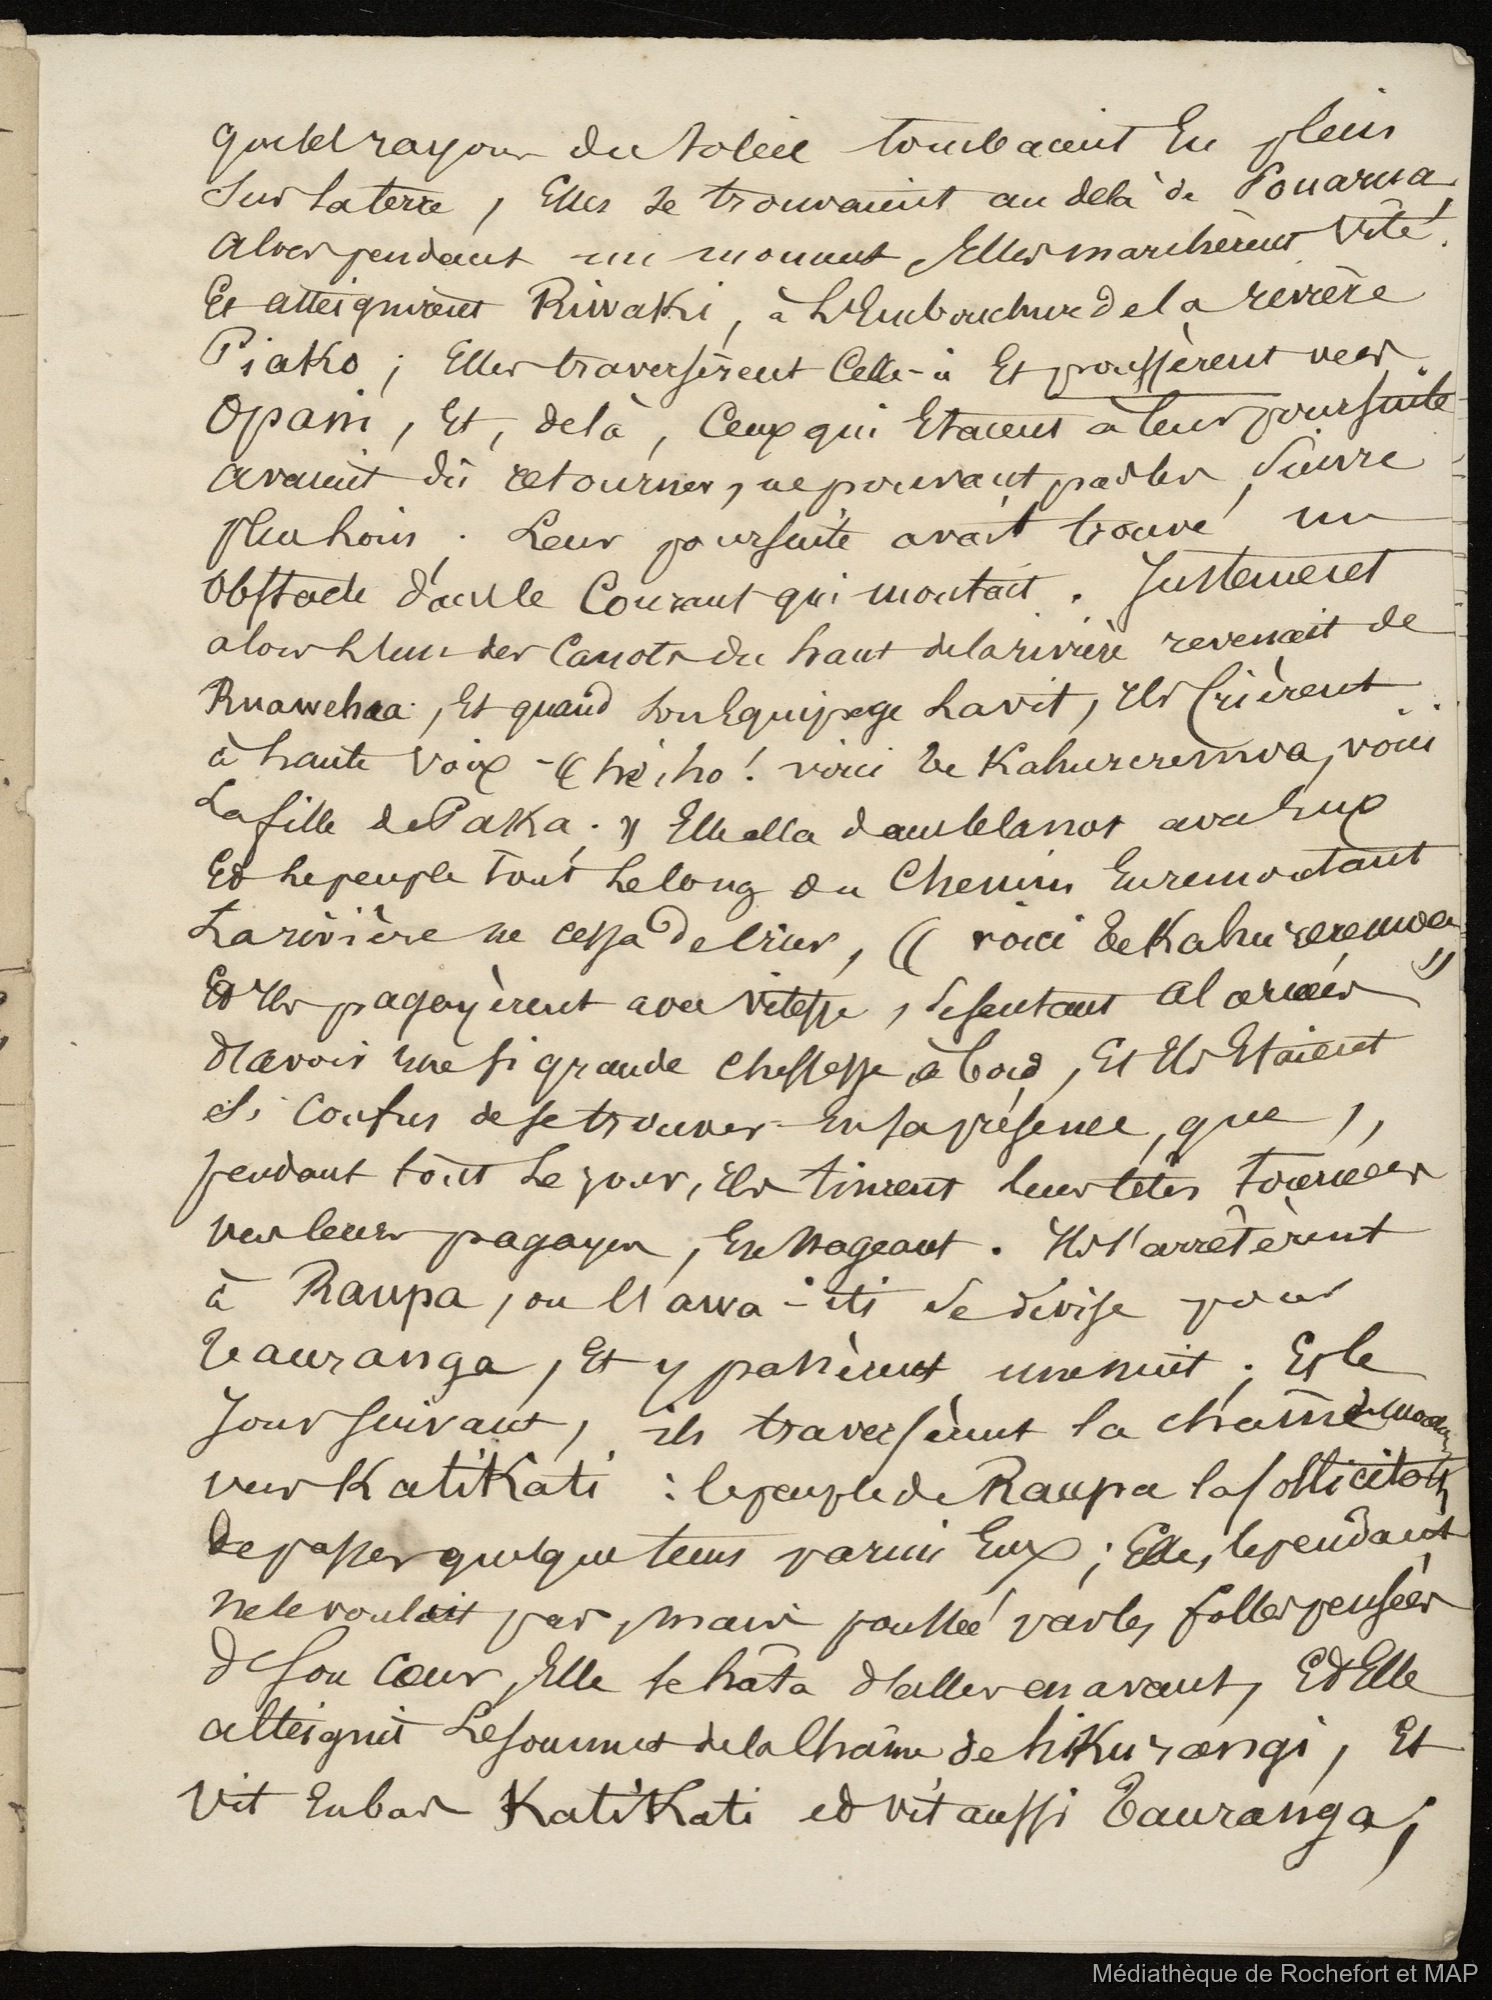 que les rayons du soleil tombaient En plein
Sur la terre, Elles se trouvaient au delà de Pouarua,
alors pendant un moment, Elles marchèrent vite.
Et atteignirent Riwaki, à L'Embouchure de la rivière
Piako ; Elles traversèrent Celle-ci Et poussèrent vers
Opani, Et, de là, Ceux qui Etaient à leur poursuite
avaient dû retourner, ne pouvant pas les Suivre
plus loin. Leur poursuite avait trouvé un
Obstacle dans le Courant qui montait. Justement
alors L'un des Canots du haut de la rivière revenait de
Ruawehea, Et quand son Equipage La vit, Ils Crièrent
à haute voix – « hé, ho ! voici Te Kahureremoa, voici
La fille de Paka. » Elle alla dans le canot avec Eux
Et Le peuple tout Le long du Chemin En remontant
La rivière ne cessa de Crier, « voici Te Kahureremoa »
Et Ils pagayèrent avec vitesse, Se sentant alarmés
d'avoir une si grande Cheffesse à bord, Et Ils Etaient
Si Confus de se trouver En sa présence, que,
pendant tout Le jour, Ils tinrent leurs têtes tournées
vers leurs pagayes, En Nageant. Ils s'arrêtèrent
à Raupa, ou l'awa-iti Se divise pour
Tauranga, Et y passèrent une nuit ; Et le
Jour suivant, ils traversèrent la chaîne
vers KatiKati : le peuple de Raupa la sollicitait
de passer quelque tems parmi Eux ; Elle, Cependant
ne le voulait pas, Mais poussée par les folles pensées
de Son Cœur, Elle se hâta d'aller en avant, Et Elle
atteignit Le sommet de la Chaîne de hiKurangi, Et
Vit En bas KatiKati et vit aussi Tauranga,
Médiathèque de Rochefort et MAP